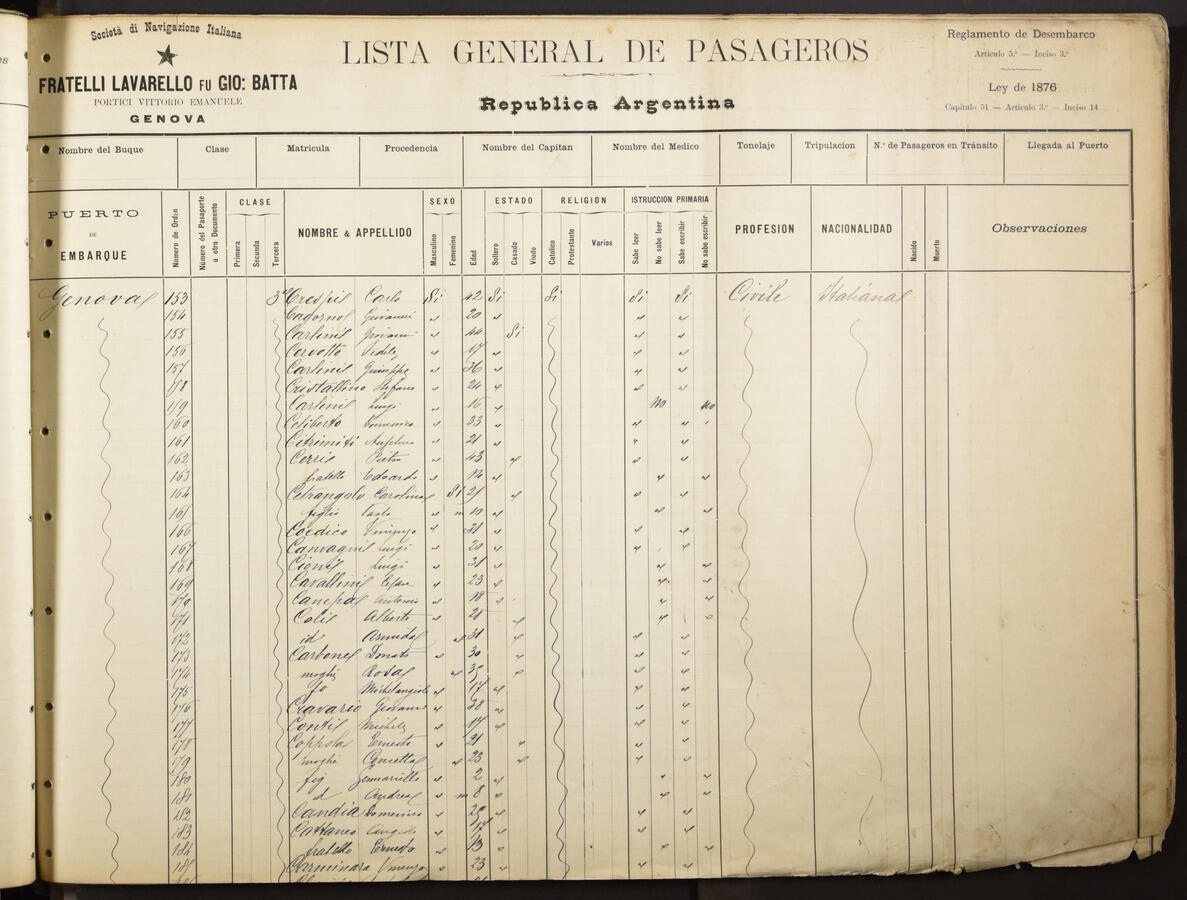 Società di Navigazione Italiana
FRATELLI LAVARELLO FU GIO: BATTA
PORTICI VITTORIO EMANUELE
GENOVA
LISTA GENERAL DE PASAGEROS
Republica Argentina
Reglamento de Desembarco
Articulo 5.º — Inciso 3.º
Ley de 1876
Capitulo 51 — Articulo 3.º — Inciso 14
Nombre del Buque Clase Matricula Procedencia Nombre del Capitan Nombre del Medico Tonelaje Tripulacion N.º de Pasageros en Tránsito Llegada al Puerto
PUERTO DE EMBARQUE
Número de Orden
Número del Pasaporte u otro Documento
CLASE
Primera Segunda Tercera
NOMBRE & APPELLIDO
SEXO
Masculino Femenino
Edad
ESTADO
Soltero Casado Viudo
RELIGION
Catolico Protestante Varios
ISTRUCCION PRIMARIA
Sabe leer No sabe leer Sabe escribir No sabe escribir
PROFESION
NACIONALIDAD
Nacido Muerto
Observaciones
Genova 153 3ª Carlo Si 42 Si Si Si Si Civile Italiana
154 Giovanni " 20 " " "
155 Carlini Giovanni " 44 Si " "
156 Cervetto " 17 " " "
157 Carlini Giuseppe " 36 " " "
158 Cristallino Stefano " 24 " " "
159 Carlini Luigi " 16 " No No
160 Celiberto Domenico " 33 " " "
161 Citrimiti Anselmo " 21 " " "
162 Cerri Pietro " 43 " " "
163 fratello Edoardo " 14 " " "
164 Cetrangolo Carolina Si 21 " " "
165 figlio Carlo 10 " " "
166 Vincenzo " 31 " " "
167 Luigi " 20 " " "
168 Luigi " 31 " " "
169 Cavallini Cesare " 23 " " "
170 Canepa Antonio " 18 " " "
171 Coli Alberto " 28 " " "
172 id Armida " 31 " " "
173 Carbone Donato " 30 " " "
174 moglie Rosa " 35 " " "
175 Michelangiolo " 17 " " "
176 Cravario Giovanni " 38 " " "
177 Conti Michele " 17 " " "
178 Coppola Ernesto " 21 " " "
179 moglie Concetta " 23 " " "
180 fig 2 " " "
181 Andrea 8 " " "
182 Candia Domenico " " " "
183 Cattaneo Angelo " 17 " " "
184 fratello Ernesto " 13 " " "
185 Carminara Vincenzo " 23 " " "